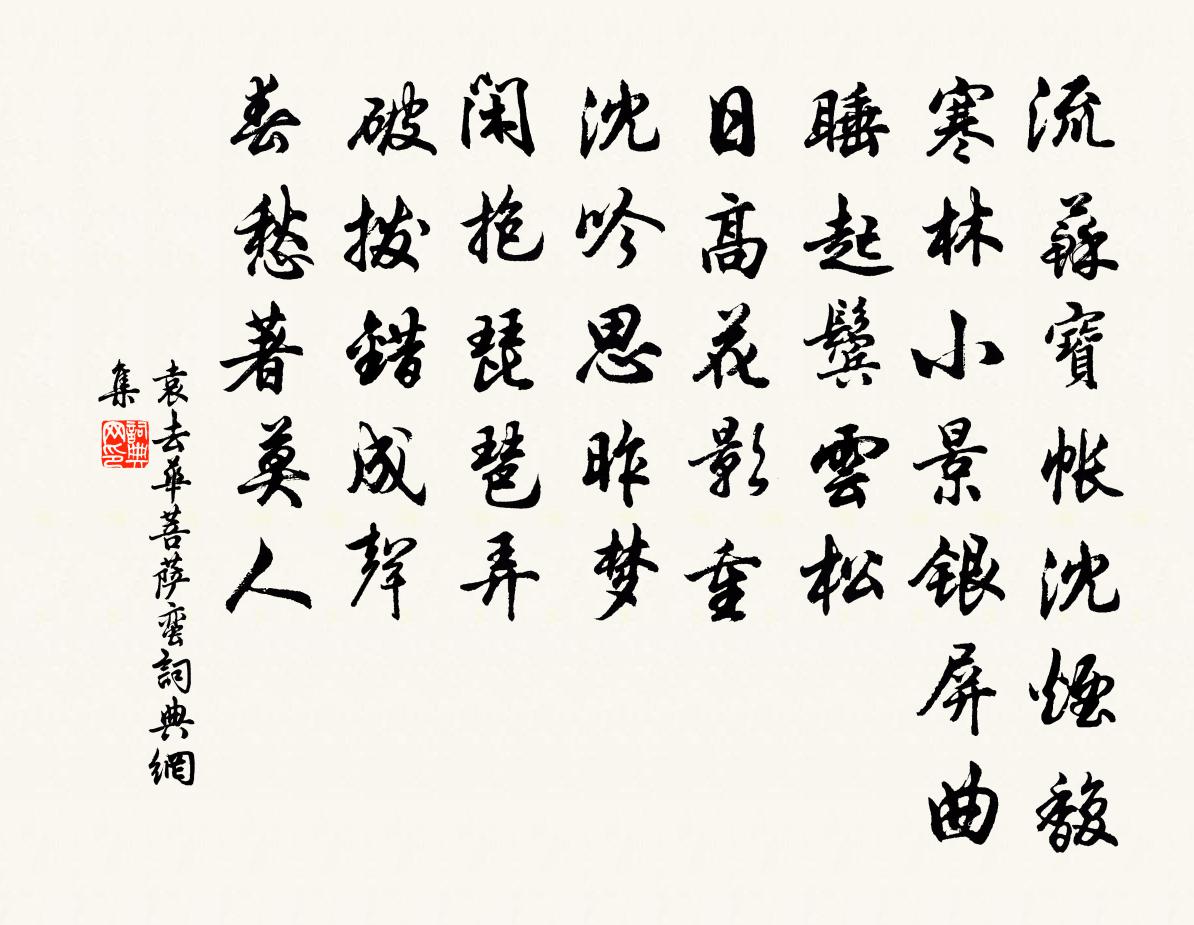 流蘇寶帳沈煙馥
寒林小景銀屏曲
睡起鬢雲松
日高花影重
沈吟思昨梦
闲抱琵琶弄
破撥錯成聲
春愁著莫人
袁去華菩薩蠻詞典網
集
詞典
网印